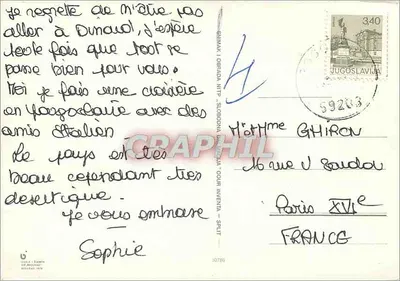 Je regrette de n'être pas
aller à Dinard, j'espère
toute fois que tout se
passe bien pour vous.
Moi je fais une croisière
en Yougoslavie avec des
amis Italien
Le pays est très
beau cependant très
desertique.
Je vous embrasse
Sophie
3.40
JUGOSLAVIJA
59203
Mr Mme GHIRON
16 rue V Sardou
Paris XVIe
FRANCE
CPARAMA